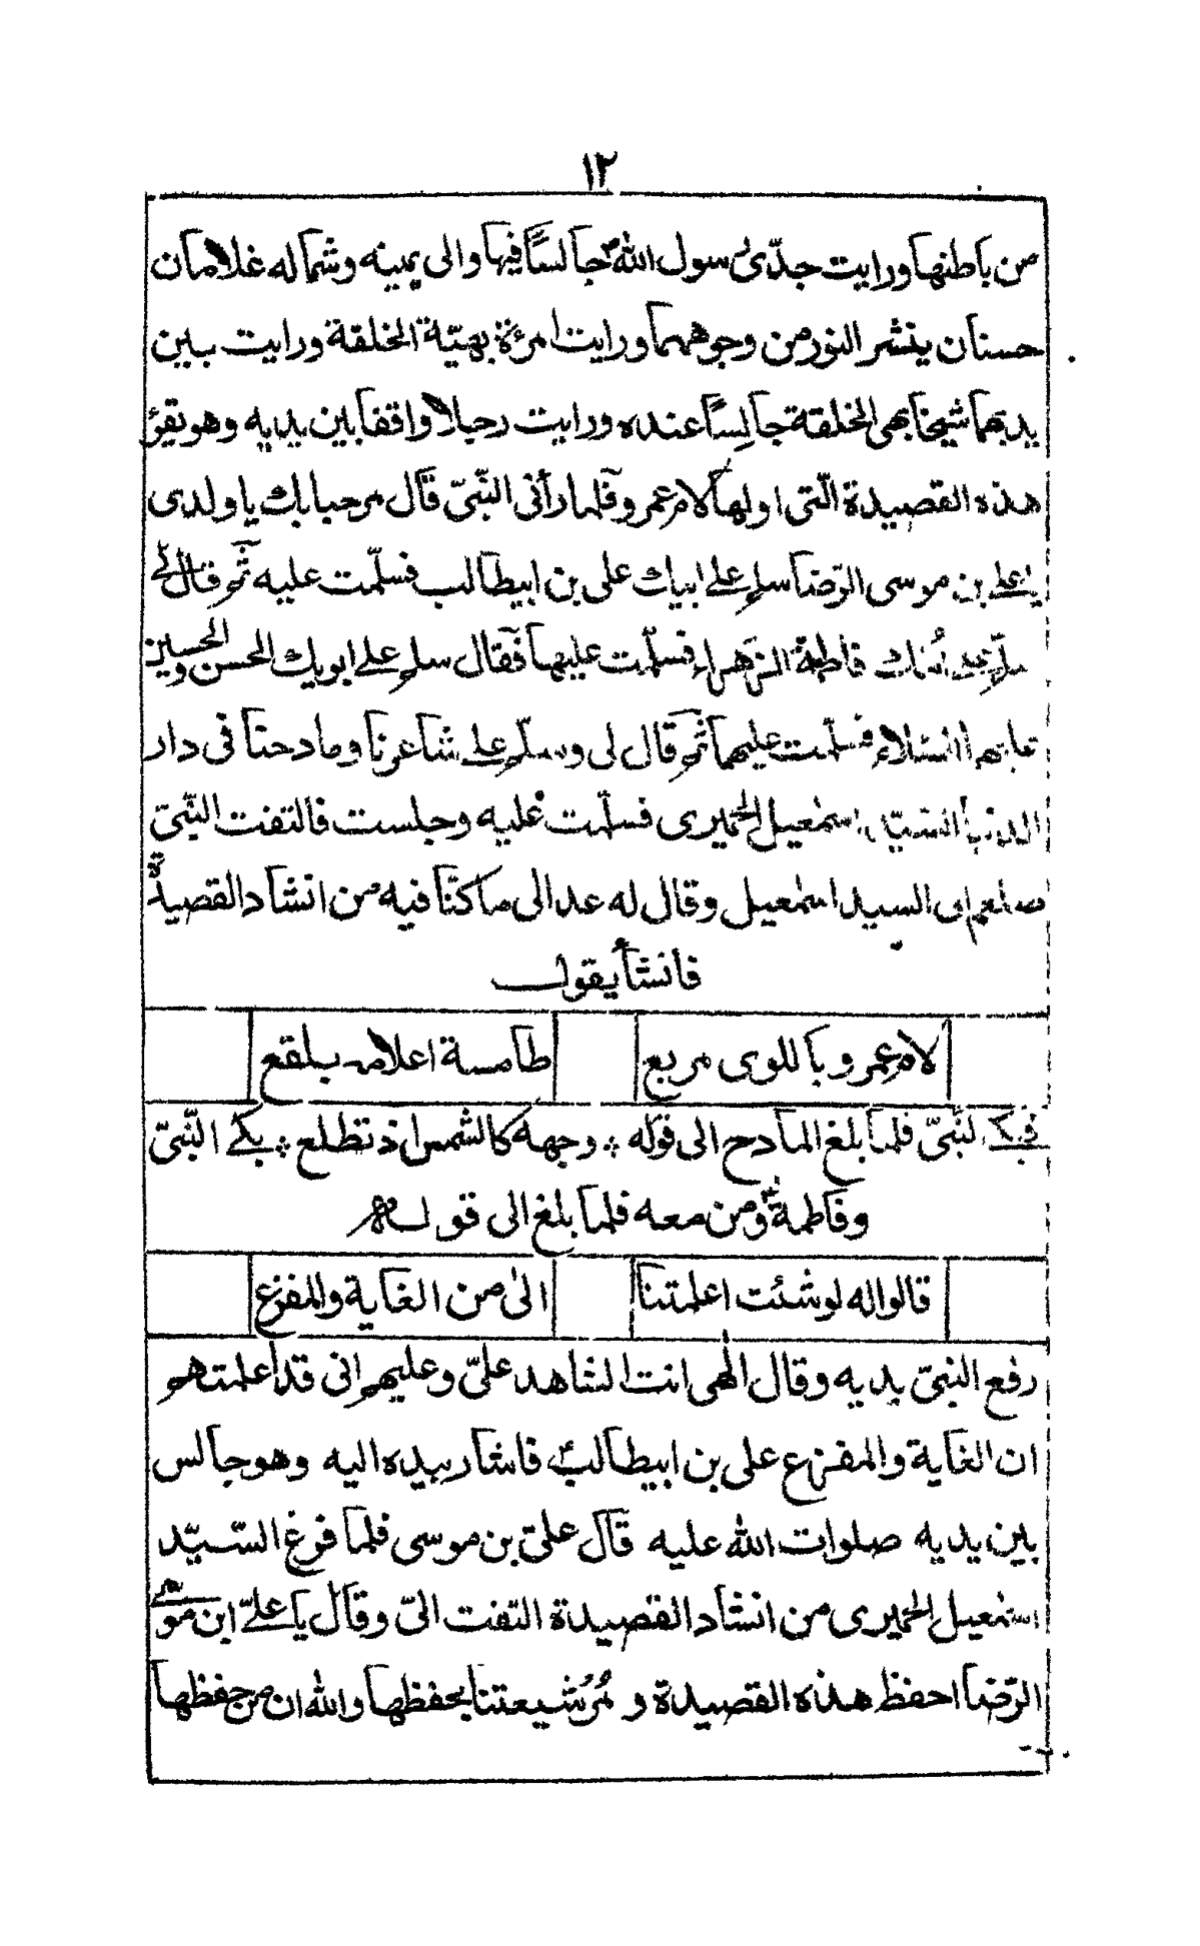 ١٢
من باطنها ورايت جدّى رسول الله ص جالساً فيها والى يمينه وشماله غلامان
حسنان ينشر النور من وجوههما ورايت امرءة بهيّة الخلقة ورايت بين
يديهما شيخا بهى الخلقة جالِساً عنده ورايت رجلا واقفا بين يديه وهو يقرئ
هذه القصيدة الّتى اولها لام عمرو فلما رأنى النّبىّ قال مرحبا بك يا ولدى
يا على بن موسى الرّضا سلم على ابيك على بن ابيطالب فسلّمت عليه ثم قال لى
سلّم على اُمّك فاطمة الزّهراء فسلّمت عليها فقال سلم على ابويك الحسن والحسين
عليهما السّلام فسلّمت عليهما ثم قال لى وسلّم على شاعرنا ومادحنا فى دار
الدنيا السّيّد اسمعيل الحميرى فسلّمت عليه وجلست فالتفت النّبىّ
صلعم الى السيد اسمعيل وقال له عد الى ما كنّا فيه من انشاد القصيدة
فانشأ يقول
لام عمرو باللوى مربع طامسة اعلامه بلقع
فبكى النّبىّ فلما بلغ المادح الى قوله ❖ وجهه كالشمس اذ تطلع ❖ بكى النّبىّ
وفاطمة ومن معه فلما بلغ الى قوله
قالوا له لو شئت اعلمتنا الى من الغاية والمفزع
رفع النبىّ يديه وقال الهى انت الشاهد علىّ وعليهم انى قد اعلمتهم
ان الغاية والمفزع على بن ابيطالب فاشار بيده اليه وهو جالس
بين يديه صلوات الله عليه قال علىّ بن موسى فلما فرغ السّيّد
اسمعيل الحميرى من انشاد القصيدة التفت الىّ وقال يا علىّ ابن موسى
الرّضا احفظ هذه القصيدة و مُرْ شيعتنا بحفظها والله ان من حفظها